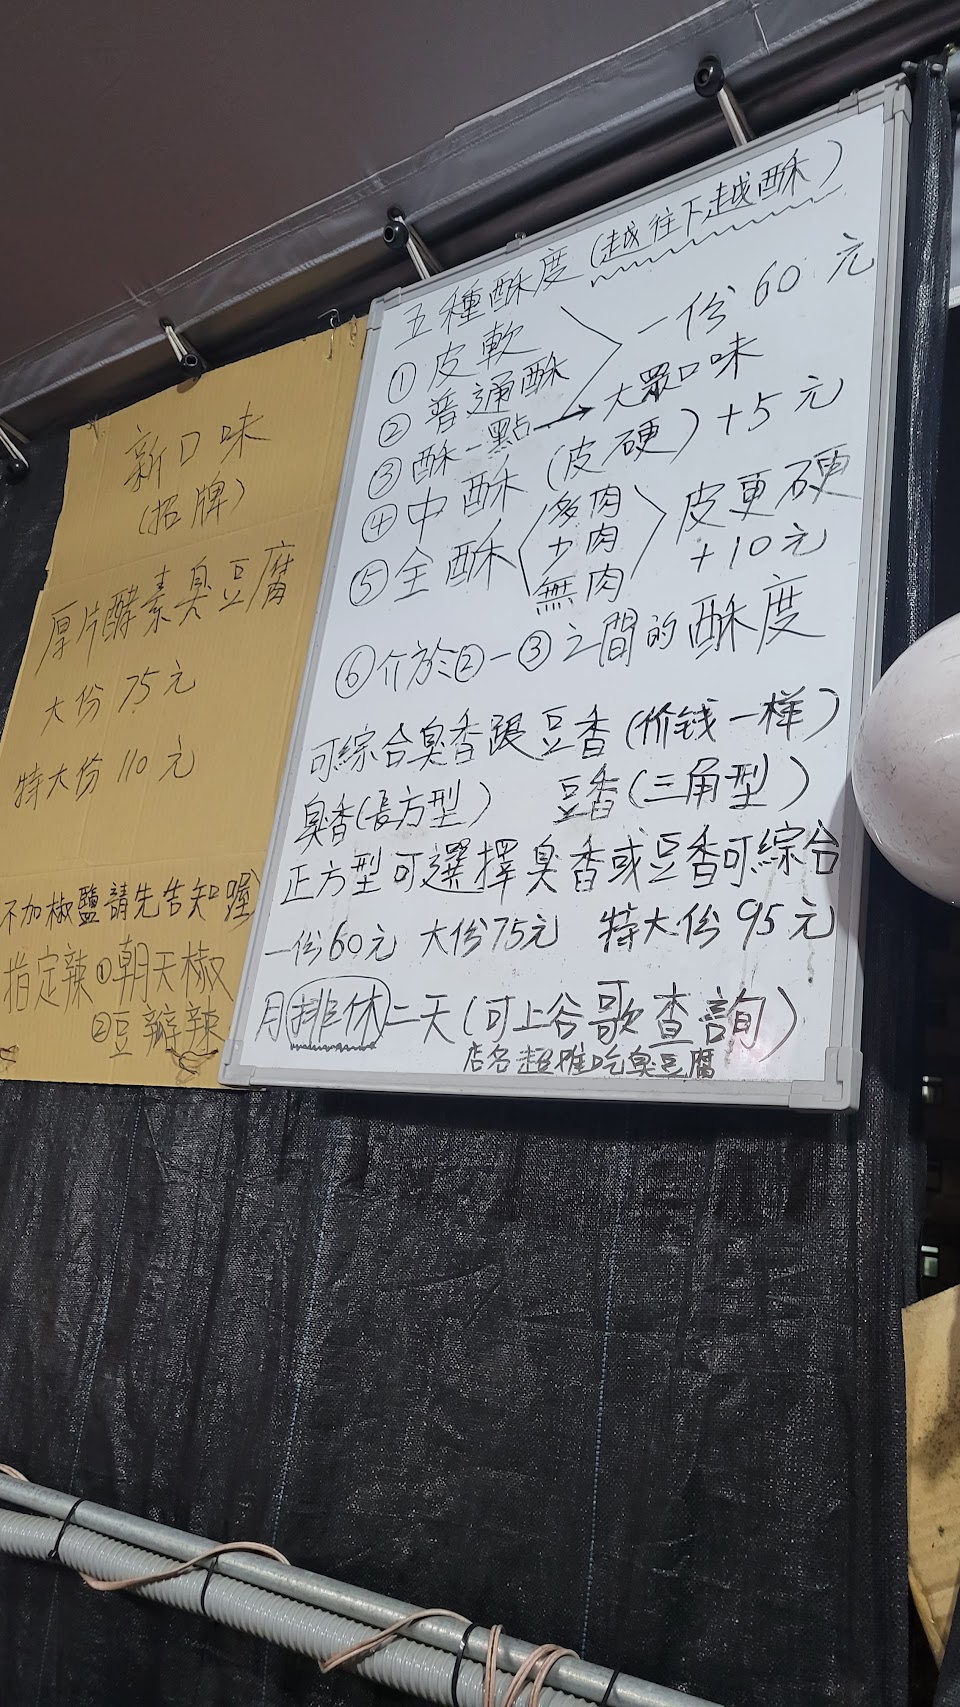 新口味
(招牌)
厚片酵素臭豆腐
大份 75元
特大份 110元
不加椒鹽請先告知喔
指定辣①朝天椒
②豆瓣辣
五種酥度(越往下越酥)
①皮軟
②普通酥
一份 60 元
③酥一點→大眾口味
④中酥(皮硬)+5元
⑤全酥
多肉
少肉
無肉
皮更硬
+10元
⑥介於②-③之間的酥度
可綜合臭香跟豆香(价钱一样)
臭香(長方型) 豆香(三角型)
正方型可選擇臭香或豆香可綜合
一份60元 大份75元 特大份95元
月排休二天(可上谷歌查詢)
店名超推吃臭豆腐